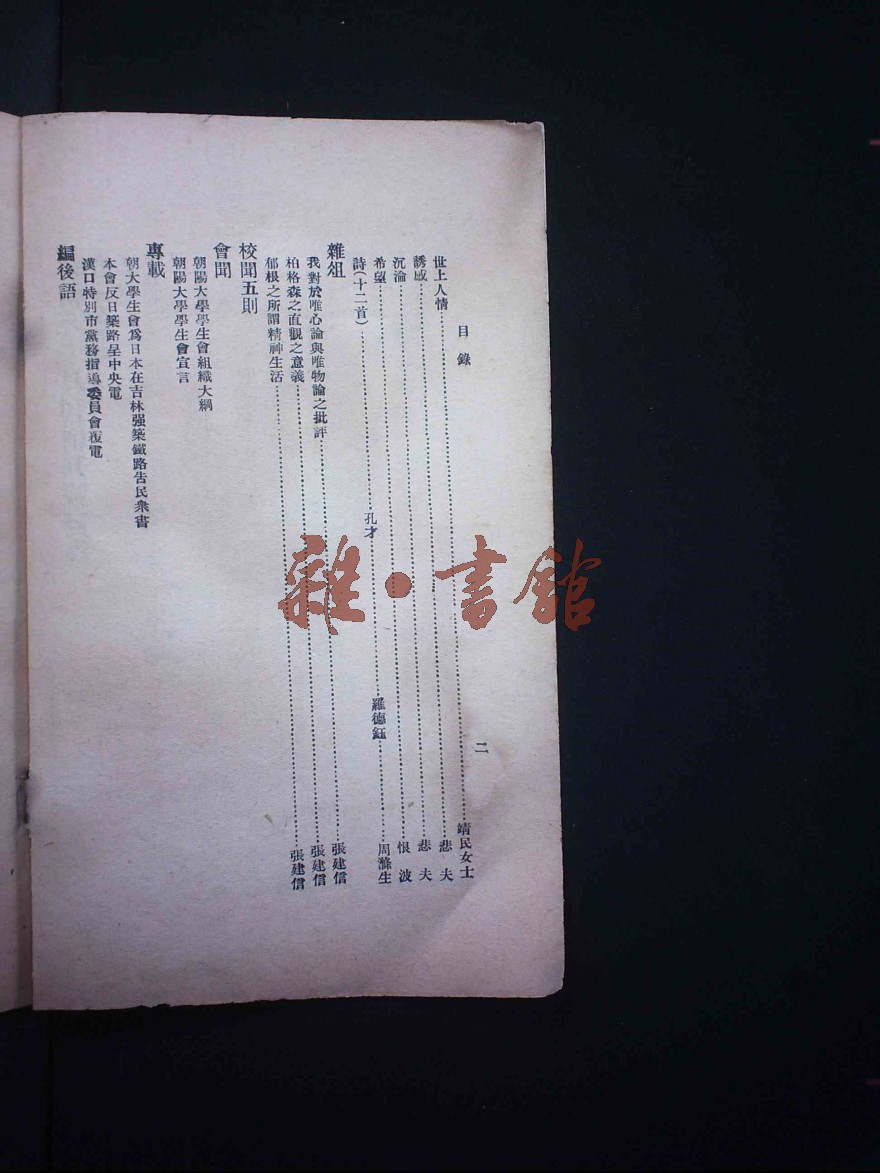 目錄　二
世上人情……靖民女士
誘惑……悲夫
沉淪……悲夫
希望……恨波
詩（十二首）……孔才……羅德鈺……周滌生
雜俎
我對於唯心論與唯物論之批評……張建信
柏格森之直觀之意義……張建信
郁根之所謂精神生活……張建信
校聞五則
會聞
朝陽大學學生會組織大綱
朝陽大學學生會宣言
專載
朝大學生會爲日本在吉林强築鐵路告民衆書
本會反日築路呈中央電
漢口特別市黨務指導委員會覆電
編後語
雜·書館